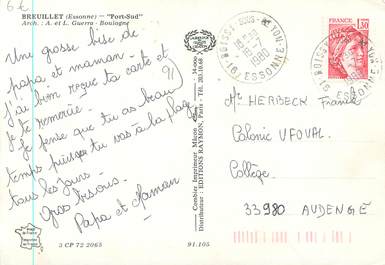 6€
BREUILLET (Essonne) — "Port-Sud"
Arch. : A. et L. Guerra - Boulogne
Une grosse bise de
papa et maman -
j'ai bien reçue ta carte et
je te remercie.
Je pense que tu as beau
temps puisque tu vas à la plage
tous les Jours -
Gros bisous.
Papa et Maman
3 CP 72 2065
91.105
Combier Imprimeur Mâcon
Distributeur : EDITIONS RAYMON, Paris - Tél. 203.10.68
BOISSY-SOUS-ST-YON
1980
91 ESSONNE
1,30
HERBECK Franck
Colonie UFOVAL
Collège
33980 AUDENGE